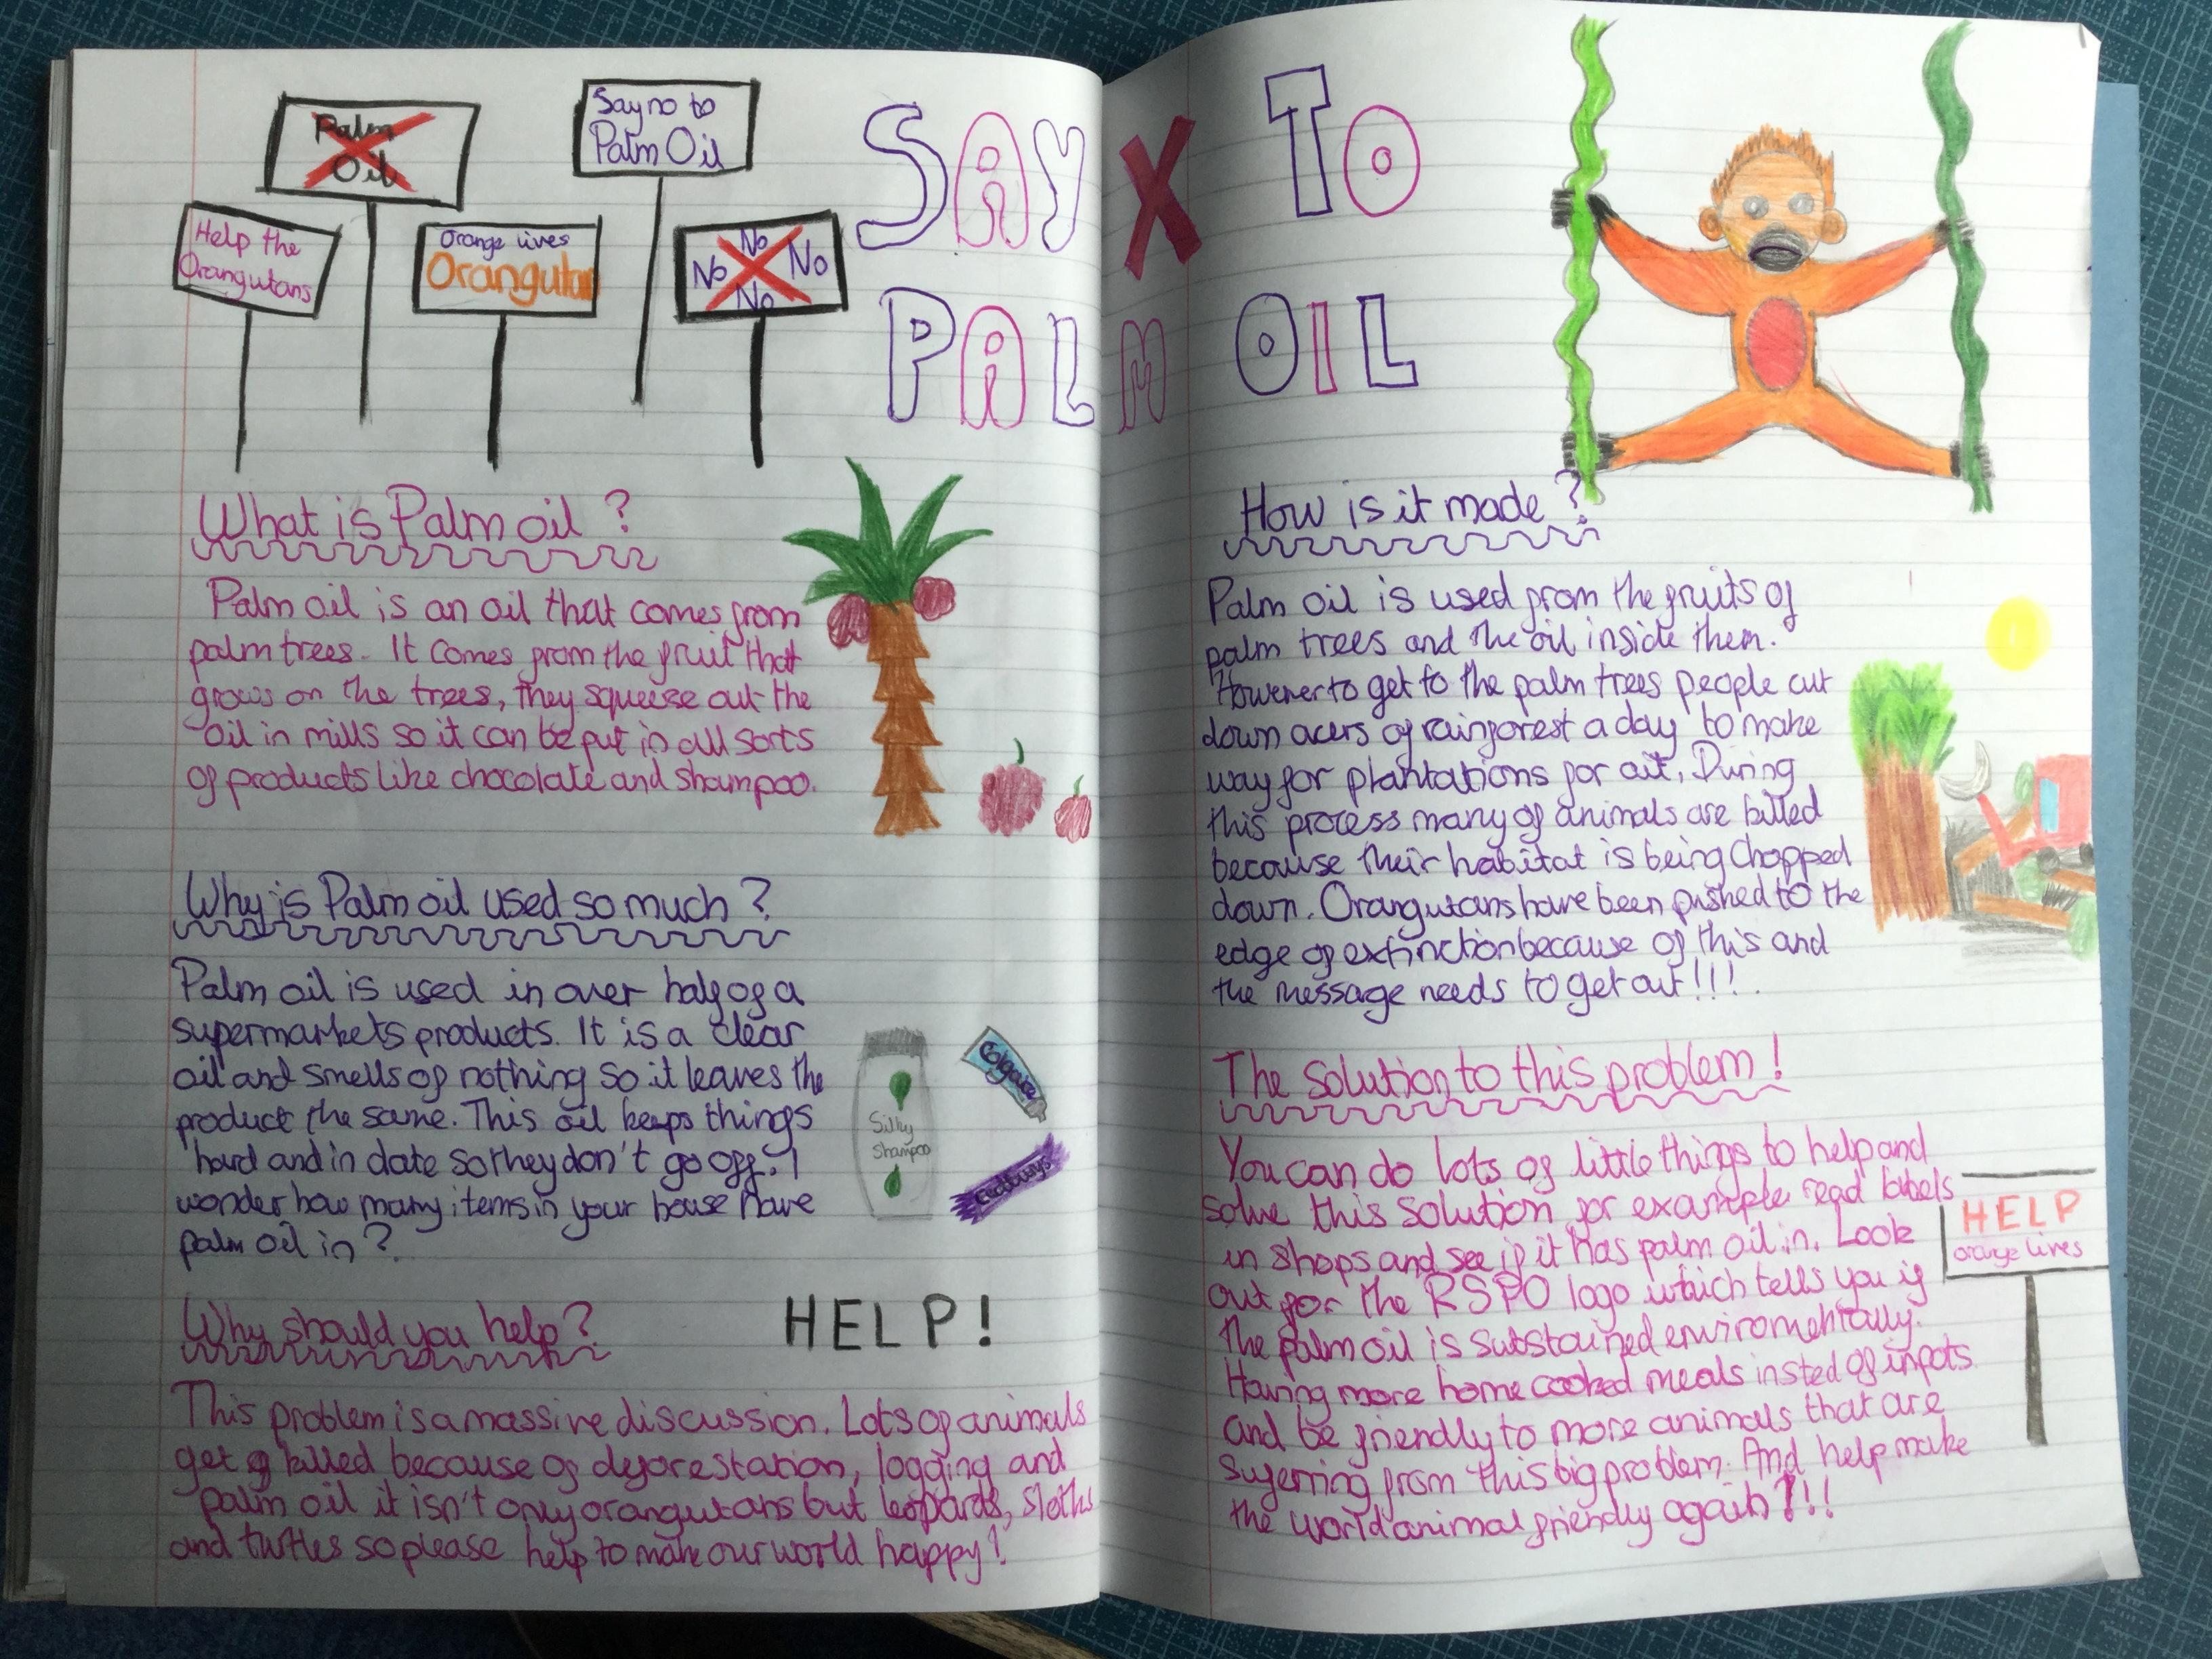 Palm
Oil
Say no to
Palm Oil
Help the
Orangutans
Orange lives
Orangutan
No
No X No
No
SAY X TO
PALM OIL
What is Palm oil ?
Palm oil is an oil that comes from
palm trees. It comes from the fruit that
grows on the trees, they squeese out the
oil in mills so it can be put in all sorts
of products like chocolate and shampoo.
Why is Palm oil used so much ?
Palm oil is used in over half of a
supermarkets products. It is a clear
oil and smells of nothing so it leaves the
product the same. This oil keeps things
hard and in date so they don't go off. I
wonder how many items in your house have
palm oil in ?
Silky
Shampoo
Colgate
Why should you help?
HELP!
This problem is a massive discussion. Lots of animals
get killed because of deforestation, logging and
palm oil it isn't only orangutans but leopards, sloths
and turtles so please help to make our world happy!
How is it made ?
Palm oil is used from the fruits of
palm trees and the oil inside them.
However to get to the palm trees people cut
down acers of rainforest a day to make
way for plantations for oil. During
this process many of animals are killed
because their habitat is being chopped
down. Orangutans have been pushed to the
edge of extinction because of this and
the message needs to get out!!!
The solution to this problem !
You can do lots of little things to help and
solve this solution for example read labels
in shops and see if it has palm oil in. Look
out for the RSPO logo which tells you if
the palm oil is substained enviromentally.
Having more home cooked meals insted of in pots
and be friendly to more animals that are
suferring from this big problem. And help make
the world animal friendly again!!!
HELP
orange lives